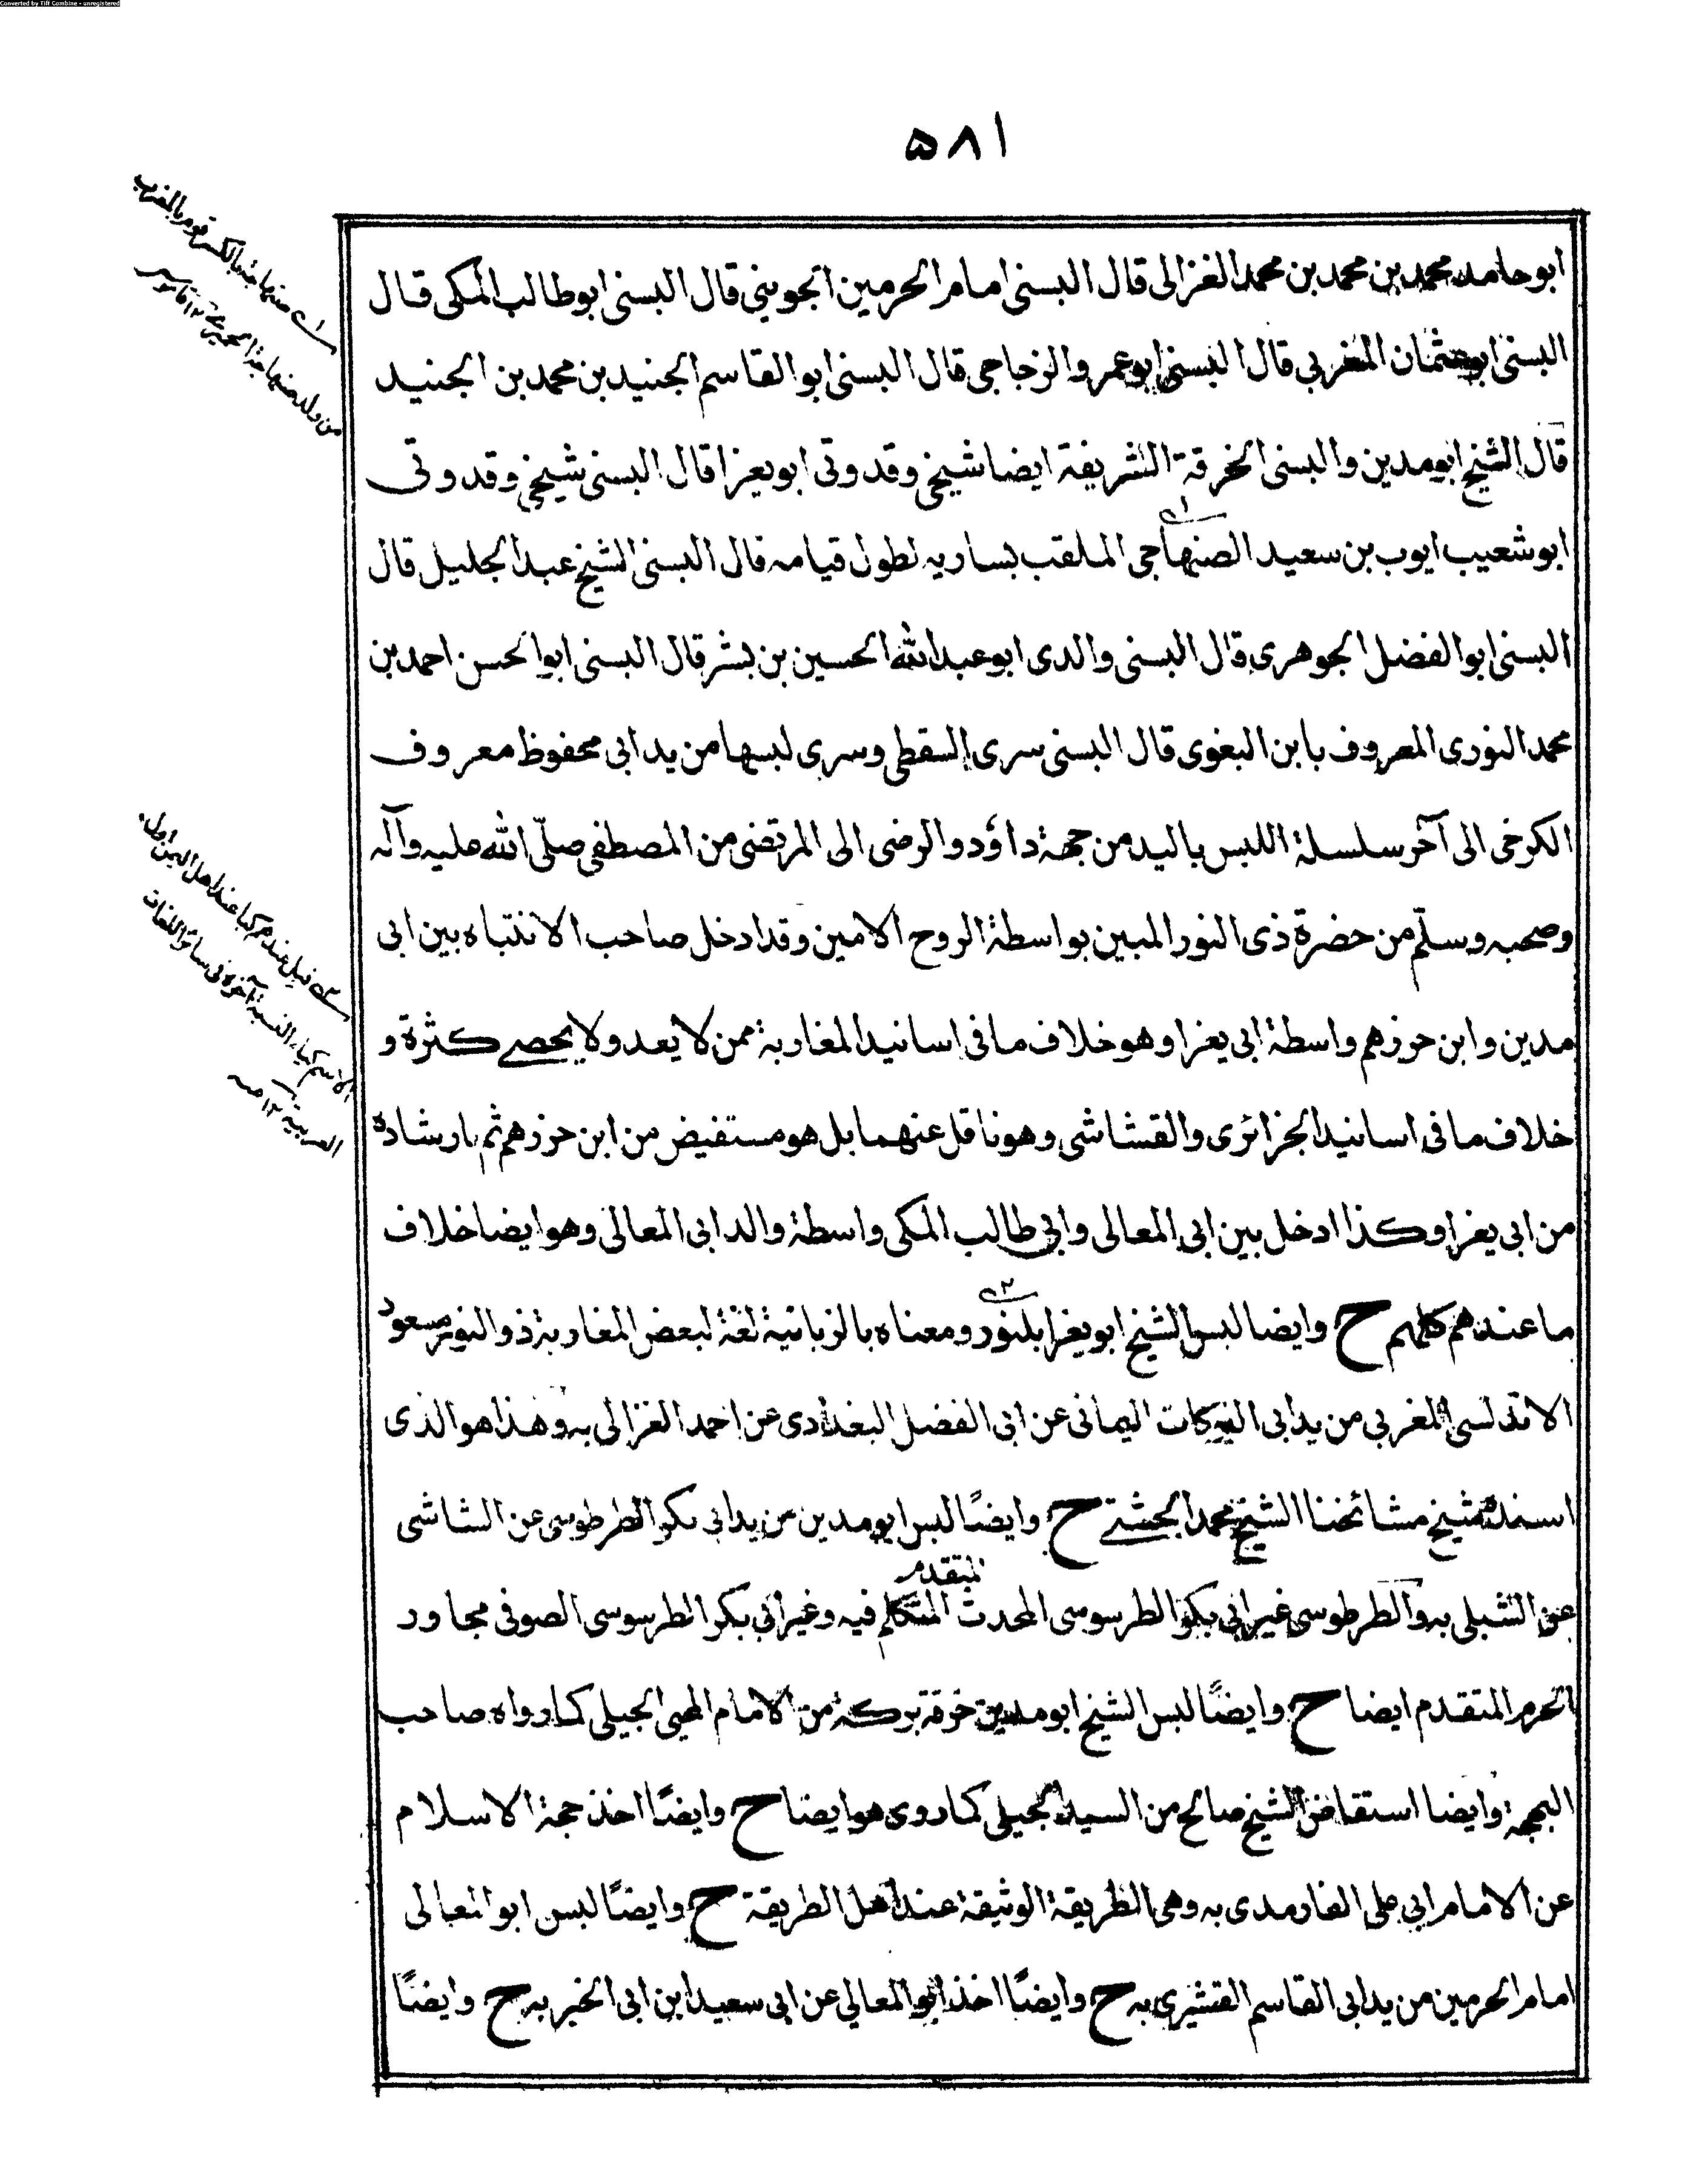 Converted by Tiff Combine - unregistered
٥٨١
ابوحامد محمد بن محمد بن محمد الغزالى قال البسنى امام الحرمين الجوينى قال البسنى ابوطالب المكى قال
البسنى ابوعثمان المغربى قال البسنى ابوعمر والزجاجى قال البسنى ابوالقاسم الجنيد بن محمد بن الجنيد
قال الشيخ ابومدين والبسنى الخرقة الشريفة ايضا شيخى وقدوتى ابويعزا قال البسنى شيخى وقدوتى
ابوشعيب ايوب بن سعيد الصنهاجى الملقب بساريه لطول قيامه قال البسنى الشيخ عبد الجليل قال
البسنى ابوالفضل الجوهرى قال البسنى والدى ابوعبد الله الحسين بن بشر قال البسنى ابوالحسن احمد بن
محمد النورى المعروف بابن البغوى قال البسنى سرى السقطى وسرى لبسها من يد ابى محفوظ معروف
الكرخى الى آخر سلسلة اللبس باليد من جهة داؤد والرضى الى المرتضى من المصطفى صلّى الله عليه وآله
وصحبه وسلّم من حضرة ذى النور المبين بواسطة الروح الامين وقد ادخل صاحب الانتباه بين ابى
مدين وابن حرزهم واسطة ابى يعزا وهو خلاف ما فى اسانيد المغاربة ممن لا يعد ولا يحصى كثرة و
خلاف ما فى اسانيد الجزائرى والقشاشى وهو ناقل عنهما بل هو مستفيض من ابن حرزهم ثم بارشاده
من ابى يعزا وكذا ادخل بين ابى المعالى وابى طالب المكى واسطة والد ابى المعالى وهو ايضا خلاف
ما عندهم كلهم ح وايضا لبس الشيخ ابويعزا بلنور ومعناه بالزبانية لغة لبعض المغاربة ذو النور مسعود
الاندلسى المغربى من يد ابى البركات اليمانى عن ابى الفضل البغدادى عن احمد الغزالى به وهذا هو الذى
اسنده شيخ مشائخنا الشيخ محمد الجشتى ح وايضًا لبس ابومدين من يد ابى بكر الطرطوسى عن الشاشى
عن الشبلى به والطرطوسى غير ابى بكر الطرسوسى المحدث المتكلم فيه وغير ابى بكر الطرسوسى الصوفى مجاور
المتقدم
الحرم المتقدم ايضا ح وايضًا لبس الشيخ ابومدين خرقة بركة من الامام المحيى الجيلى كما رواه صاحب
البهجة وايضا استفاض الشيخ صالح من السيد الجيلى كما روى هو ايضا ح وايضًا اخذ حجة الاسلام
عن الامام ابى على الفارمدى به وهى الطريقة الوثيقة عند اهل الطريقة ح وايضًا لبس ابو المعالى
امام الحرمين من يد ابى القاسم القشيرى به ح وايضًا اخذ ابو المعالى عن ابى سعيد ابن ابى الخير به ح وايضًا
صنهاجة بالكسر قوم بالمغرب
من ولد صنهاجة الحميرى ١٢ قاموس
عند اهل اليمن
آخره فى سائر اللغات
العربية ١٢ منه